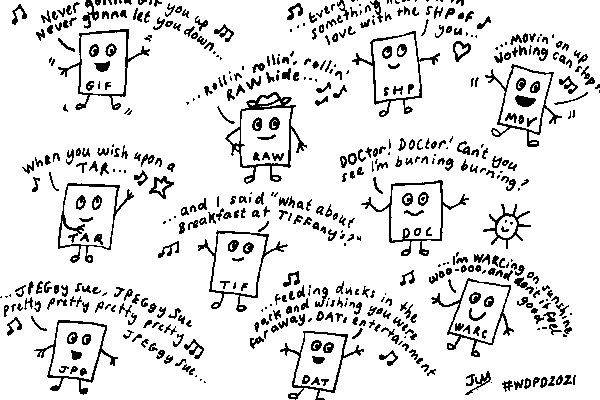 Never gonna GIF you up
Never gonna let you down...
GIF
...Every
something
love with the SHP of
you...
SHP
...MOVin' on up
Nothing can stop
MOV
...Rollin' rollin', rollin'
RAW hide...
RAW
When you wish upon a
TAR...
TAR
...and I said "what about
Breakfast at TIFFany's?"
TIF
DOCtor! DOCtor! Can't you
see I'm burning burning?
DOC
...I'm WARCing on sunshine,
woo-ooo, and don't it feel
good!
WARC
...JPEGgy Sue, JPEGgy Sue
Pretty pretty pretty pretty
JPEGgy Sue...
JPG
...feeding ducks in the
park and wishing you were
far away, DATs entertainment
DAT
#WDPD2021